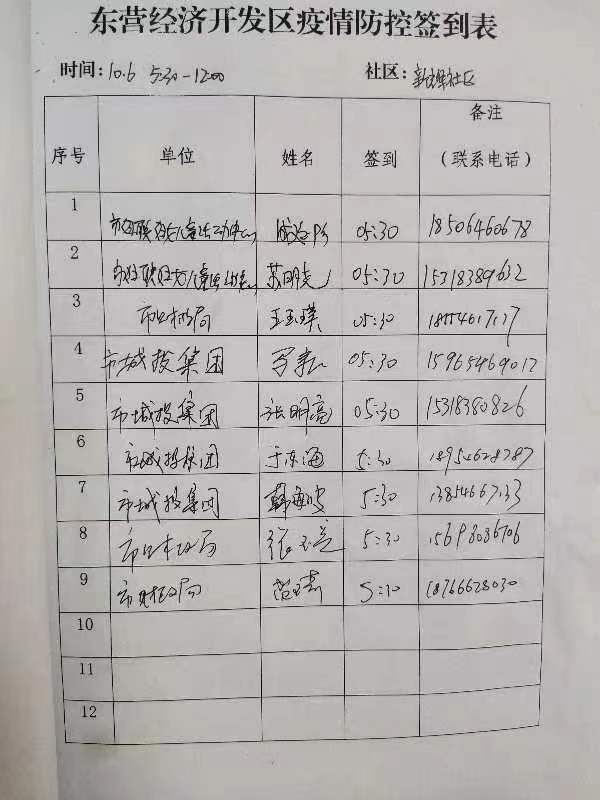 东营经济开发区疫情防控签到表
时间：10.6 5:30-12:00 社区：社区
序号 单位 姓名 签到 备注（联系电话）
1 05:30 18506460678
2 苏明 05:30 15318389632
3 王玉瑛 05:30
4 市城投集团 05:30 15965469012
5 市城投集团 张明亮 05:30 15318380826
6 市城投集团 于东海 5:30 18954628787
7 市城投集团 韩 5:30 13854667133
8 市财政局 张 5:30 15698086706
9 市财政局 5:10 18766628030
10
11
12